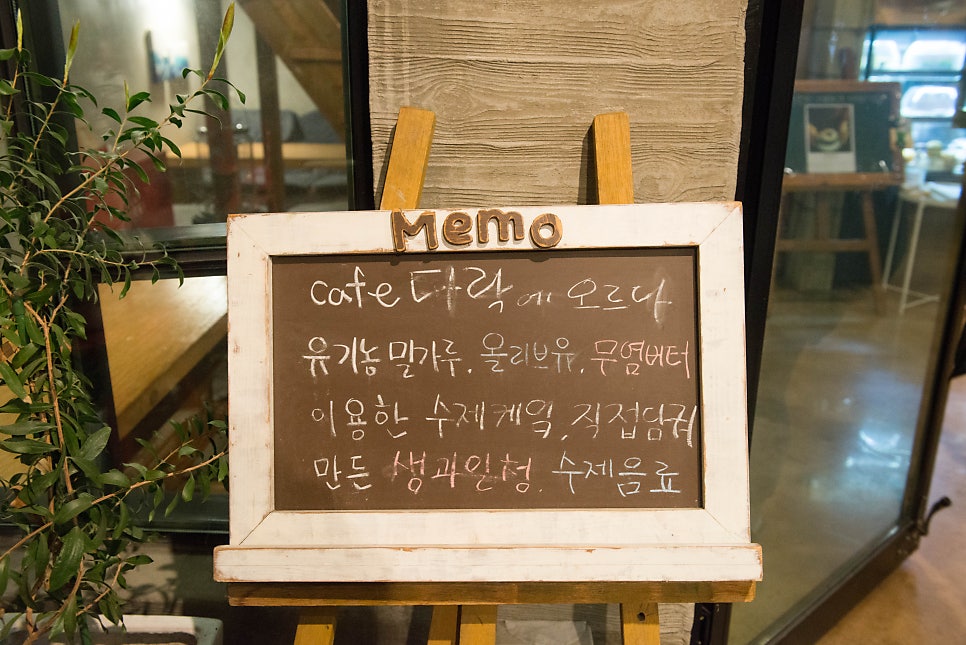 Memo
cafe 다락에 오르다
유기농밀가루, 올리브유, 무염버터
이용한 수제케익, 직접담궈
만든 생과일청, 수제음료